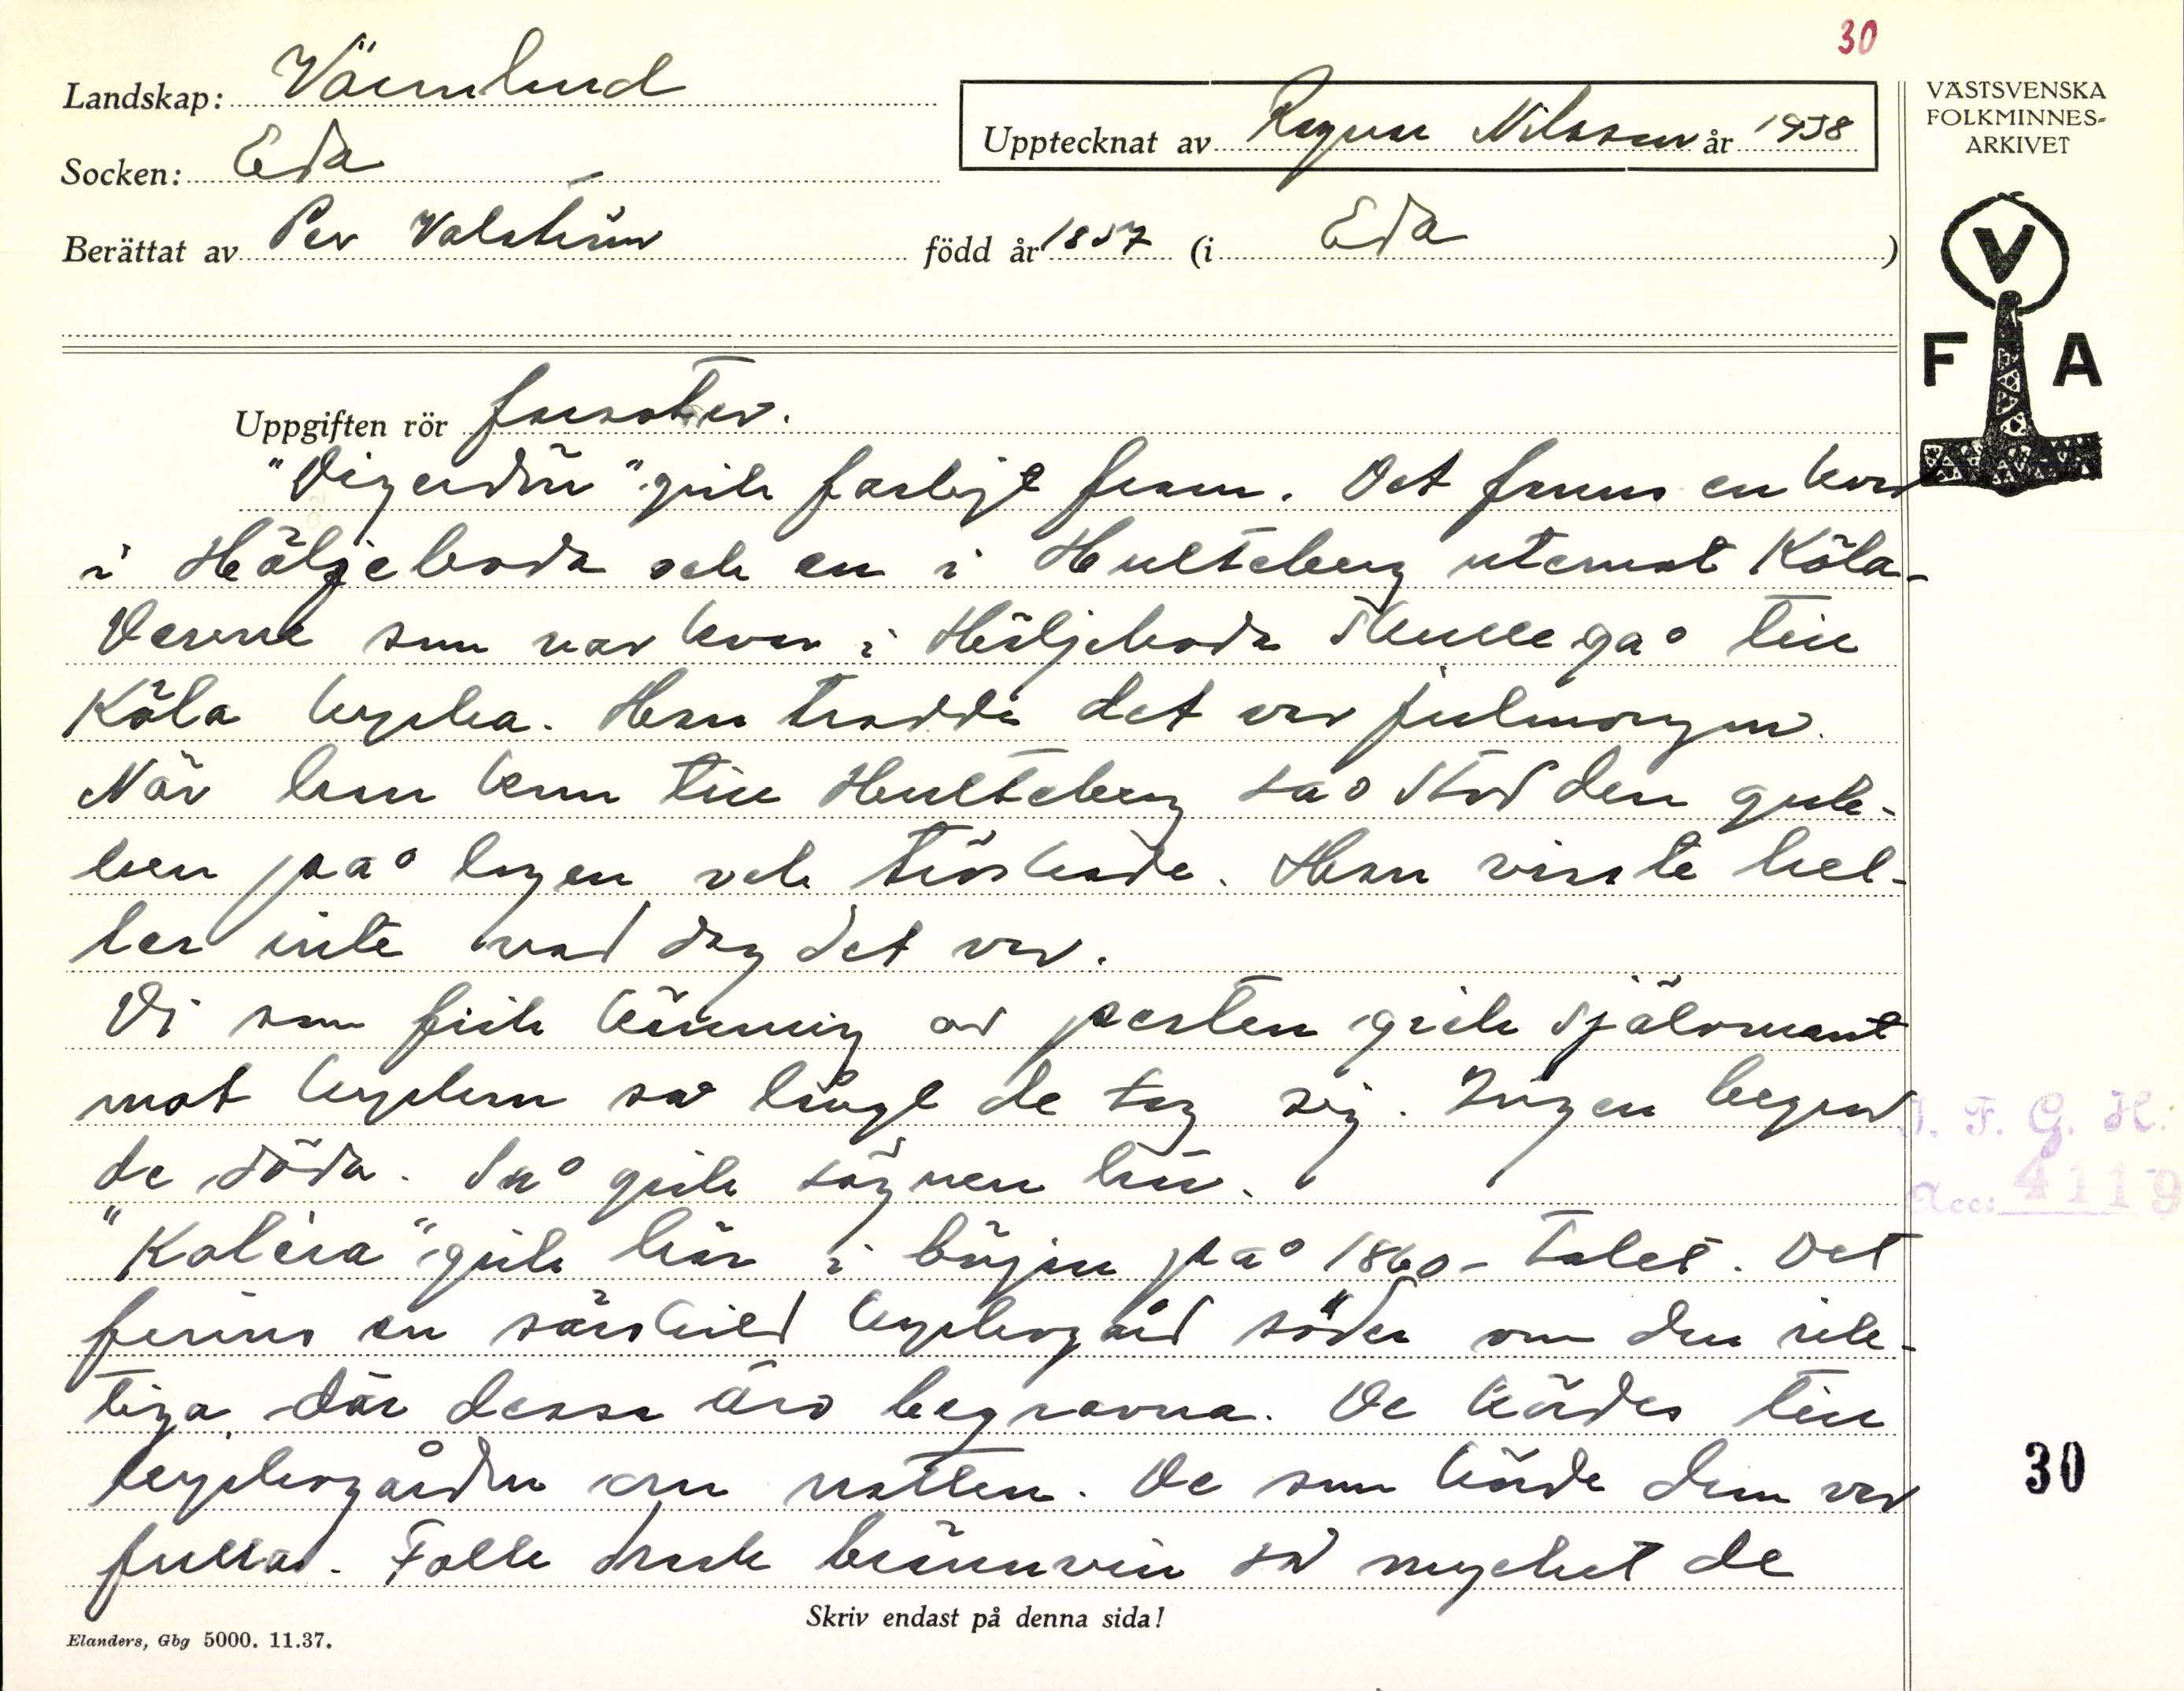 30
Landskap: Värmland
Upptecknat av Ragnar Nilsson år 1938
VÄSTSVENSKA
FOLKMINNES-
ARKIVET
Socken: Eda
Berättat av Per Valström född år 1857 (i Eda )
V
F A
Uppgiften rör farsoter.
"Digerdön" gick farligt fram. Det fanns en kvar
i Häljeboda och en i Hulteberg utemot Köla.
Denne som var kvar i Häljeboda skulle gå till
Köla kyrka. Han trodde det var julmorgon.
När han kom till Hulteberg så stod den gub-
ben på logen och tröskade. Han visste hel-
ler inte vad dag det var.
De som fick känning av pesten gick självmant
mot kyrkan så långt de tog sig. Ingen begrov
de döda. Så gick sägnen här.
"Koléra" gick här i början på 1860-talet. Det
finns en särskild kyrkogård söder om den rik-
tiga där dessa äro begravna. De kördes till
kyrkogården om natten. De som körde dem var
fulla. Folk drack brännvin så mycket de
J. F. G. H.
Acc: 4119
30
Skriv endast på denna sida!
Elanders, Gbg 5000. 11.37.